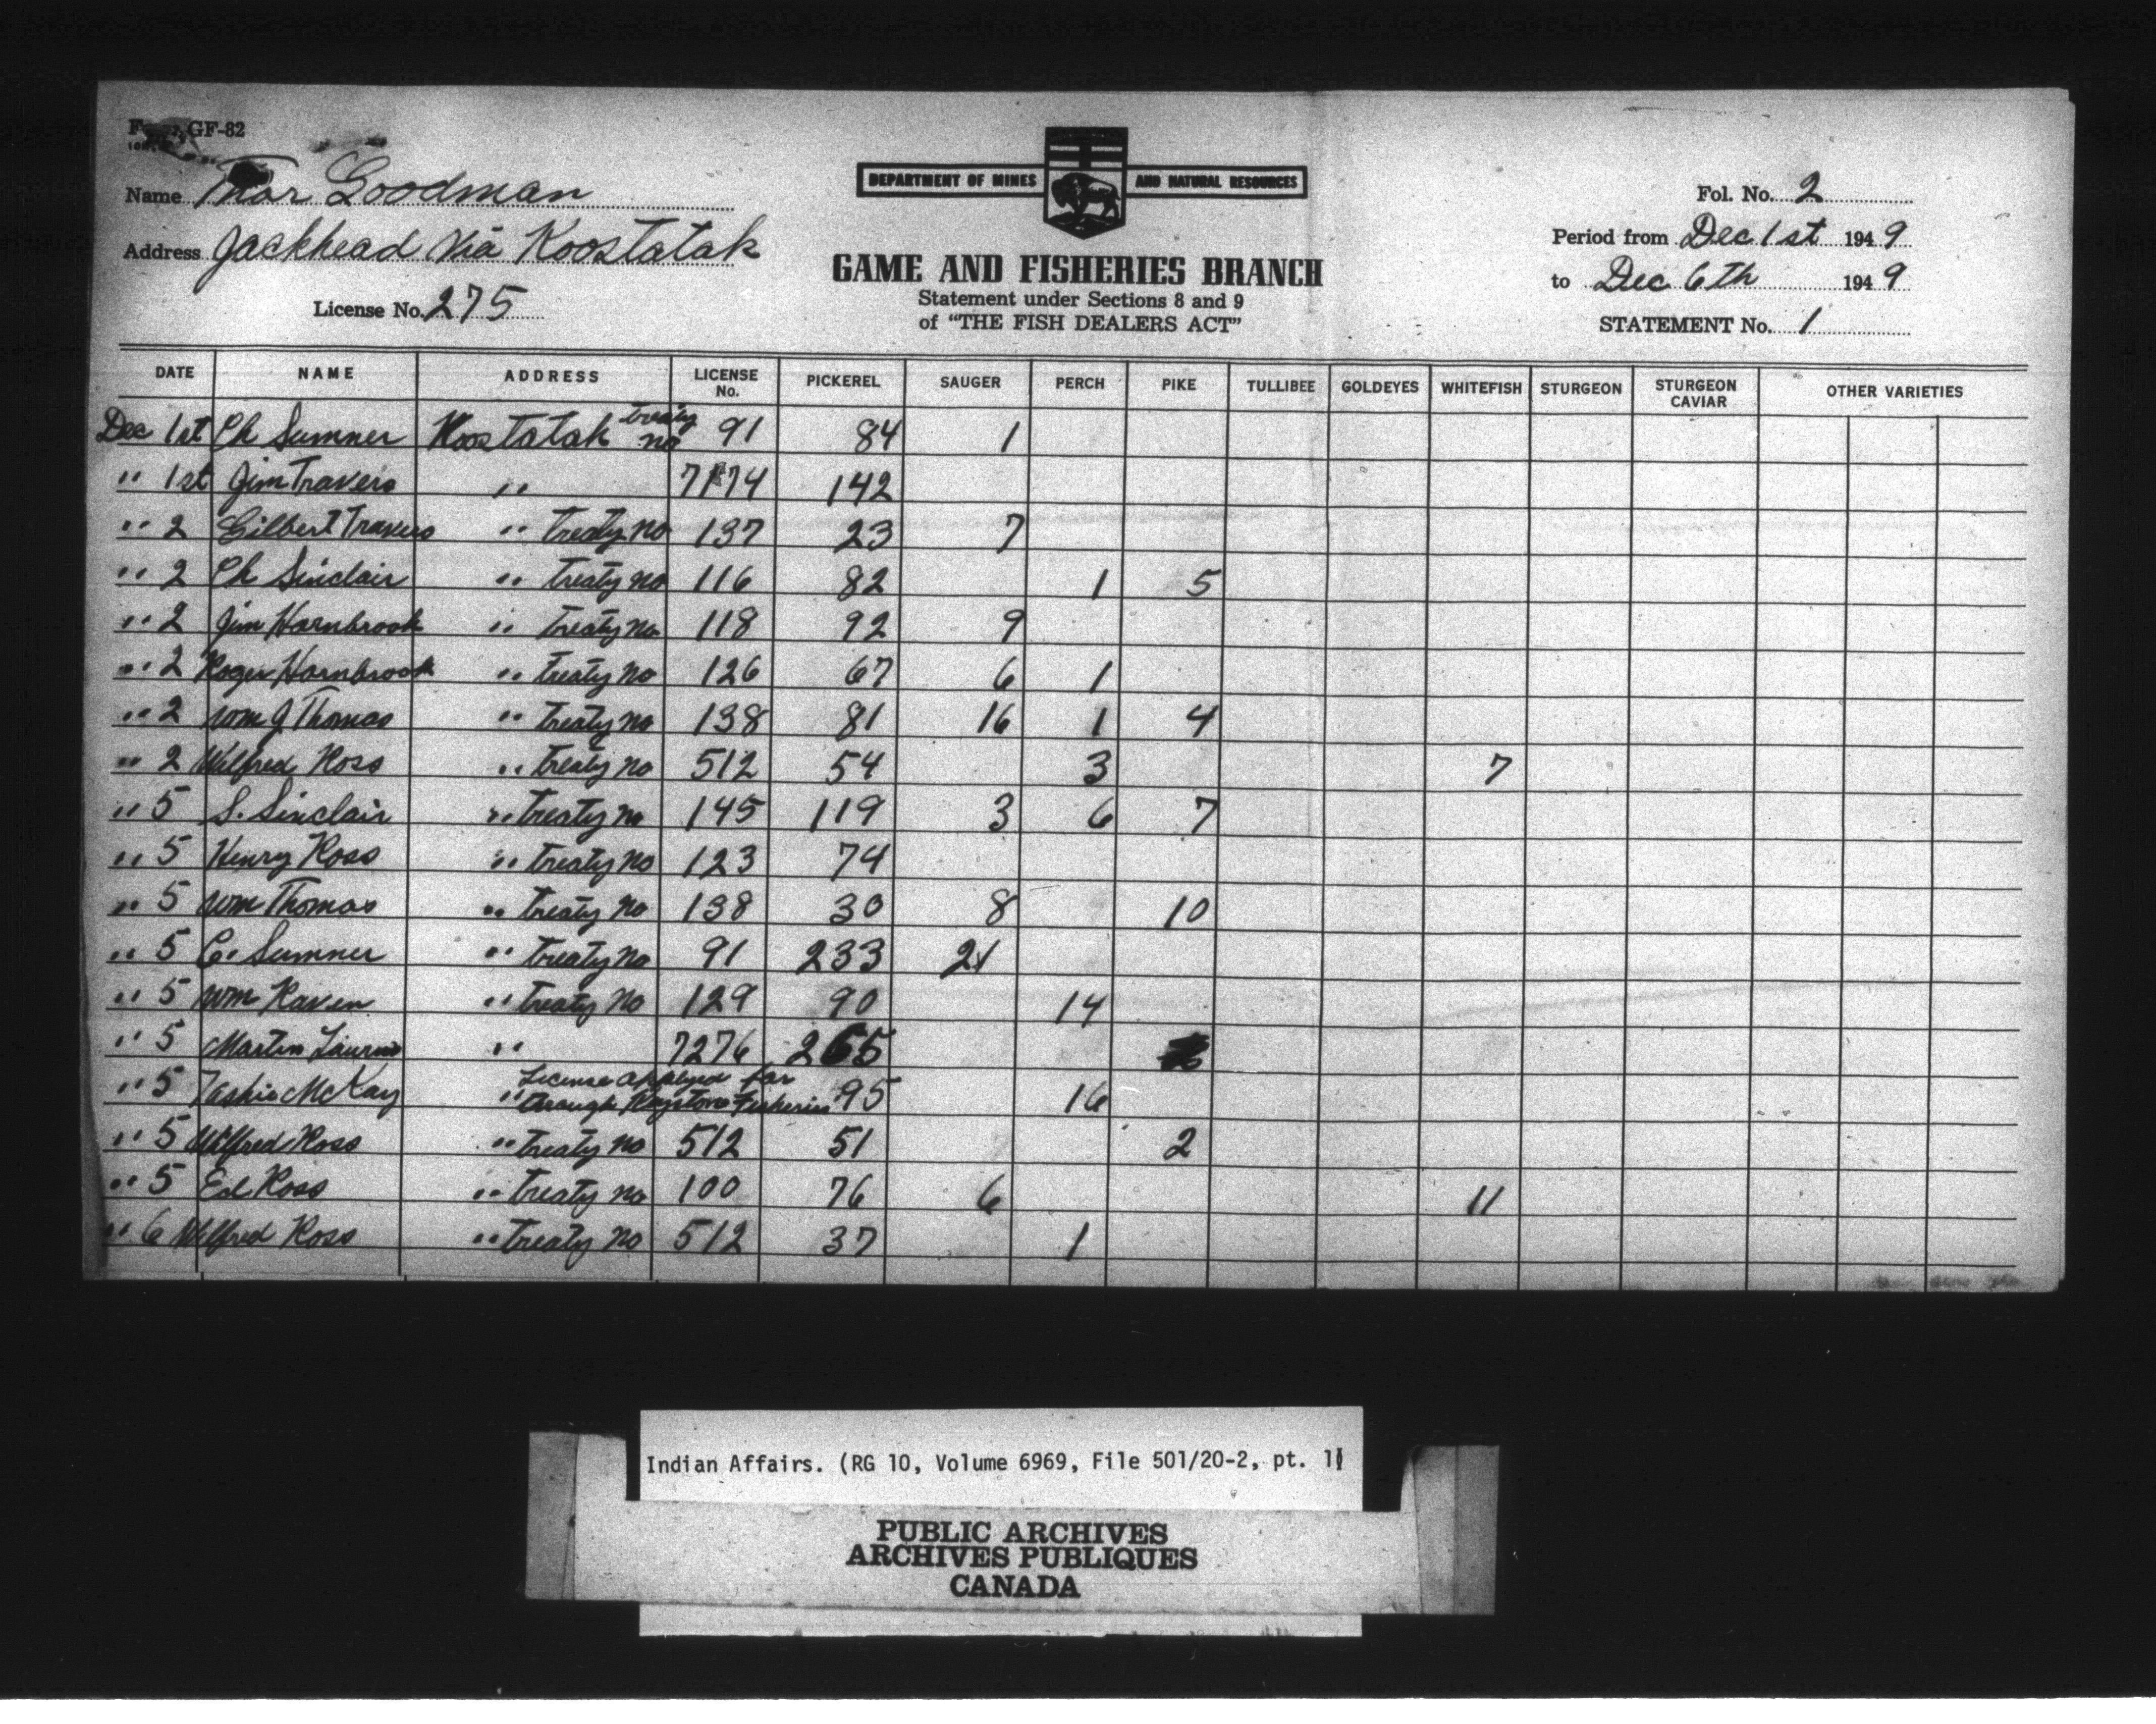 Form GF-82
Name Thor Goodman
Address Jackhead via Koostatak
License No. 275
DEPARTMENT OF MINES AND NATURAL RESOURCES
GAME AND FISHERIES BRANCH
Statement under Sections 8 and 9
of "THE FISH DEALERS ACT"
Fol. No. 2
Period from Dec 1st 1949
to Dec 6th 1949
STATEMENT No. 1
DATE NAME ADDRESS LICENSE No. PICKEREL SAUGER PERCH PIKE TULLIBEE GOLDEYES WHITEFISH STURGEON STURGEON CAVIAR OTHER VARIETIES
Dec 1st Ch Sumner Koostatak treaty no 91 84 1
" 1st Jim Travers " 7174 142
" 2 Gilbert Travers " treaty no 137 23 7
" 2 Ch Sinclair " treaty no 116 82 1 5
" 2 Jim Hornbrook " treaty no 118 92 9
" 2 Roger Hornbrook " treaty no 126 67 6 1
" 2 Wm J Thomas " treaty no 138 81 16 1 4
" 2 Wilfred Ross " treaty no 512 54 3 7
" 5 S. Sinclair " treaty no 145 119 3 6 7
" 5 Henry Ross " treaty no 123 74
" 5 Wm Thomas " treaty no 138 30 8 10
" 5 C. Sumner " treaty no 91 233 21
" 5 Wm Raven " treaty no 129 90 14
" 5 Martin " 7276 265
" 5 McKay " License applyed for through Keystone Fisheries 95 16
" 5 Wilfred Ross " treaty no 512 51 2
" 5 Ed Ross " treaty no 100 76 6 11
" 6 Wilfred Ross " treaty no 512 37 1
Indian Affairs. (RG 10, Volume 6969, File 501/20-2, pt. 1)
PUBLIC ARCHIVES
ARCHIVES PUBLIQUES
CANADA